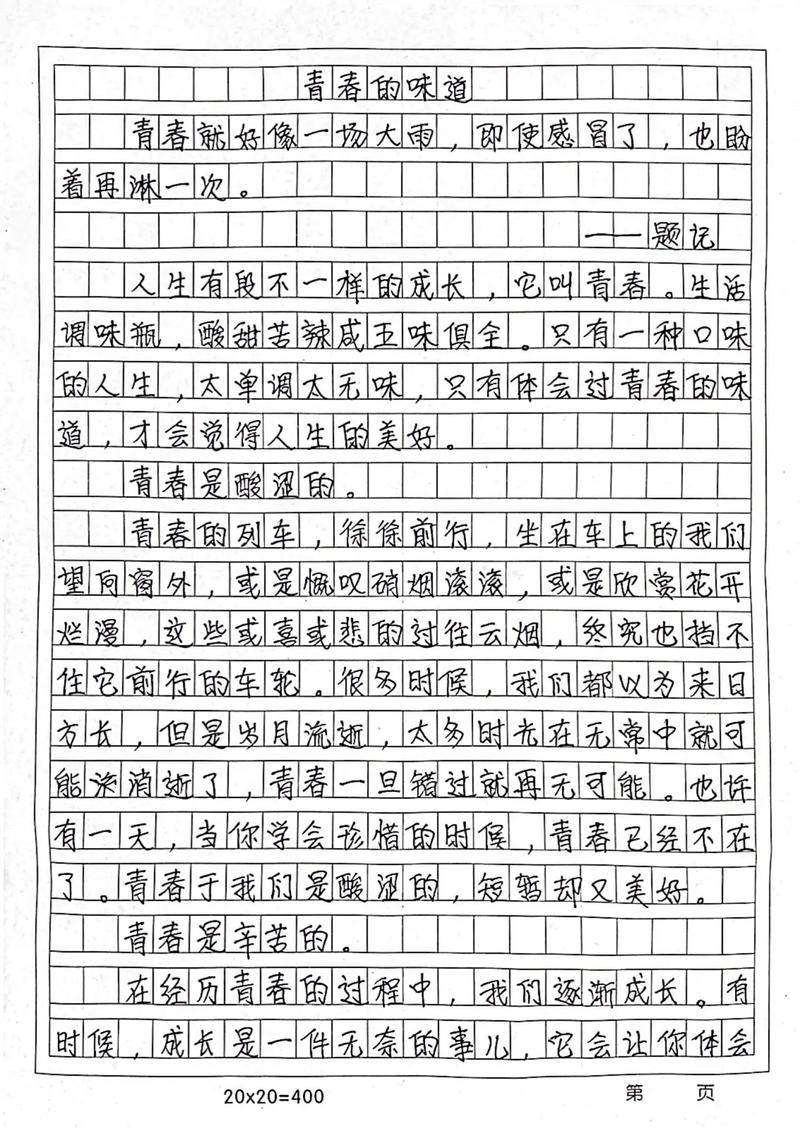 青春的味道
青春就好像一场大雨，即使感冒了，也盼
着再淋一次。
——题记
人生有段不一样的成长，它叫青春。生活
调味瓶，酸甜苦辣咸五味俱全。只有一种口味
的人生，太单调太无味，只有体会过青春的味
道，才会觉得人生的美好。
青春是酸涩的。
青春的列车，徐徐前行，坐在车上的我们
望向窗外，或是慨叹硝烟滚滚，或是欣赏花开
烂漫，这些或喜或悲的过往云烟，终究也挡不
住它前行的车轮。很多时候，我们都以为来日
方长，但是岁月流逝，太多时光在无常中就可
能流消逝了，青春一旦错过就再无可能。也许
有一天，当你学会珍惜的时候，青春已经不在
了。青春于我们是酸涩的，短暂却又美好。
青春是辛苦的。
在经历青春的过程中，我们逐渐成长。有
时候，成长是一件无奈的事儿，它会让你体会
20×20=400
第 页